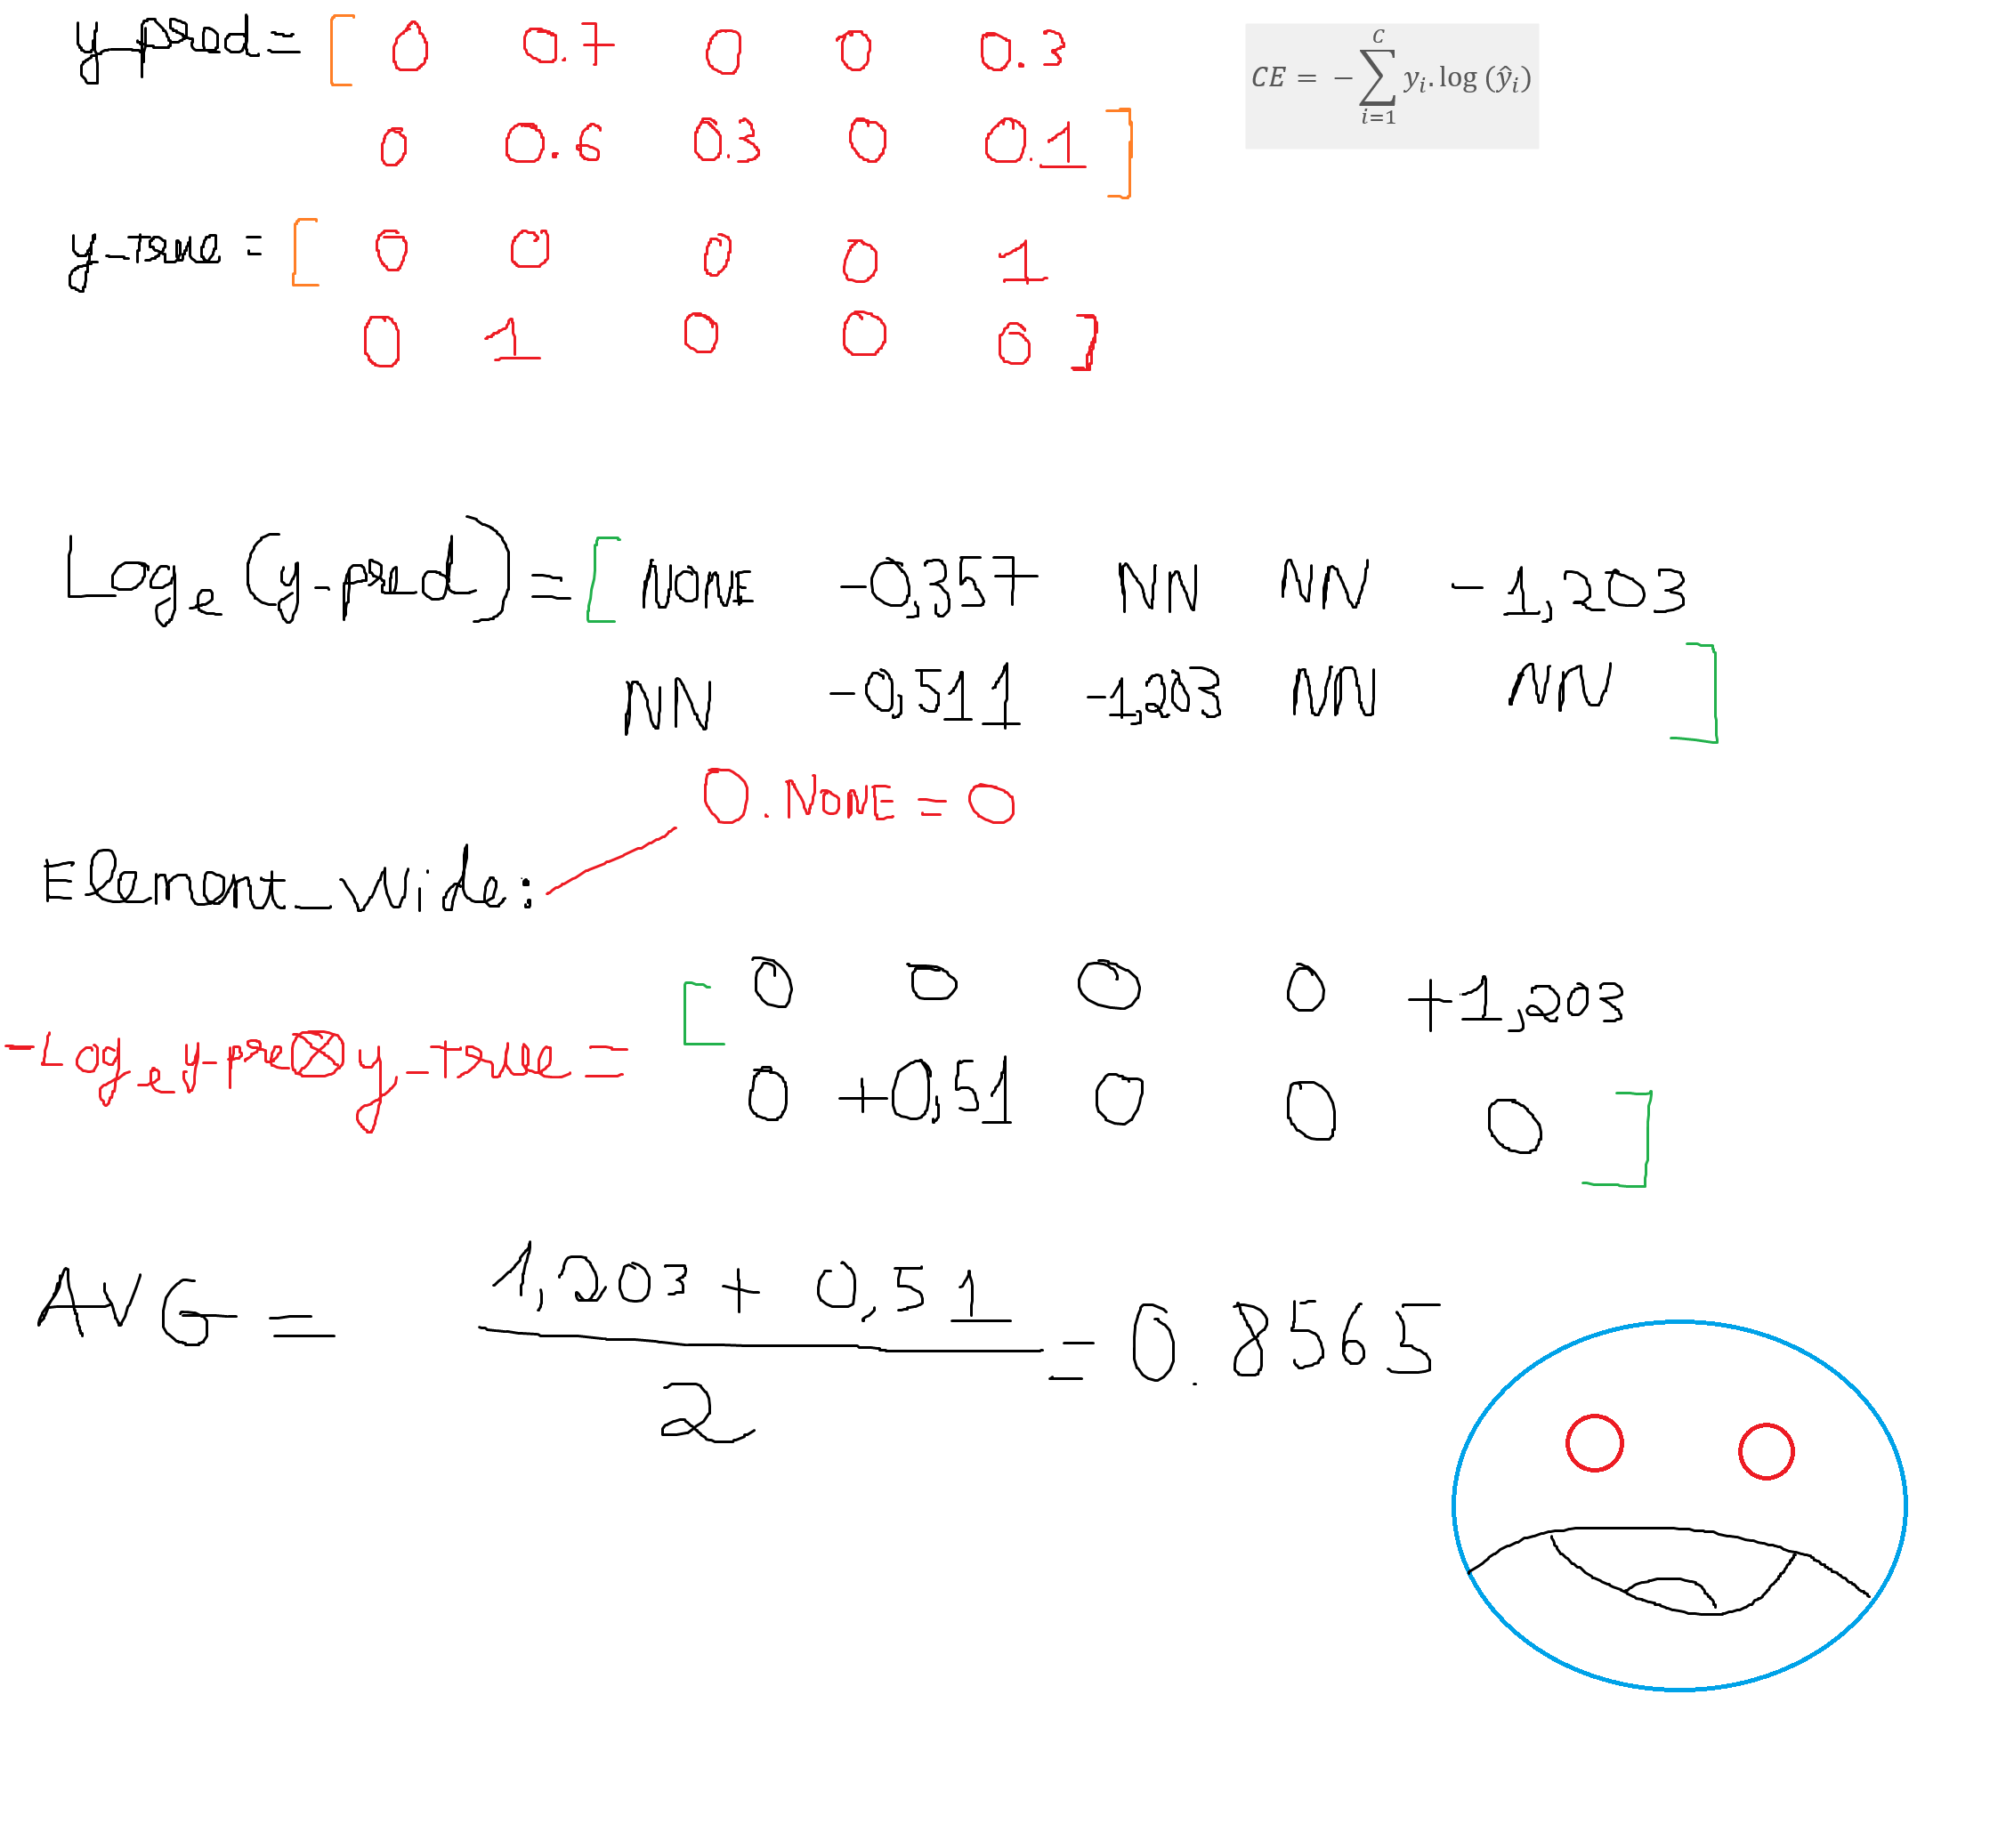 y_pred = [ 0 0.7 0 0 0.3
0 0.6 0.3 0 0.1 ]
CE = - \sum_{i=1}^{C} y_i . log (ŷ_i)
y_true = [ 0 0 0 0 1
0 1 0 0 0 ]
Log_e (y-pred) = [ NONE -0,357 NN NN -1,203
NN -0,511 -1,203 NN NN ]
0 . NONE = 0
Element_wide:
[ 0 0 0 0 +1,203
-Log_e y-pre ⊗ y_true =
0 +0,51 0 0 0 ]
AVG = \frac{1,203 + 0,51}{2} = 0.8565